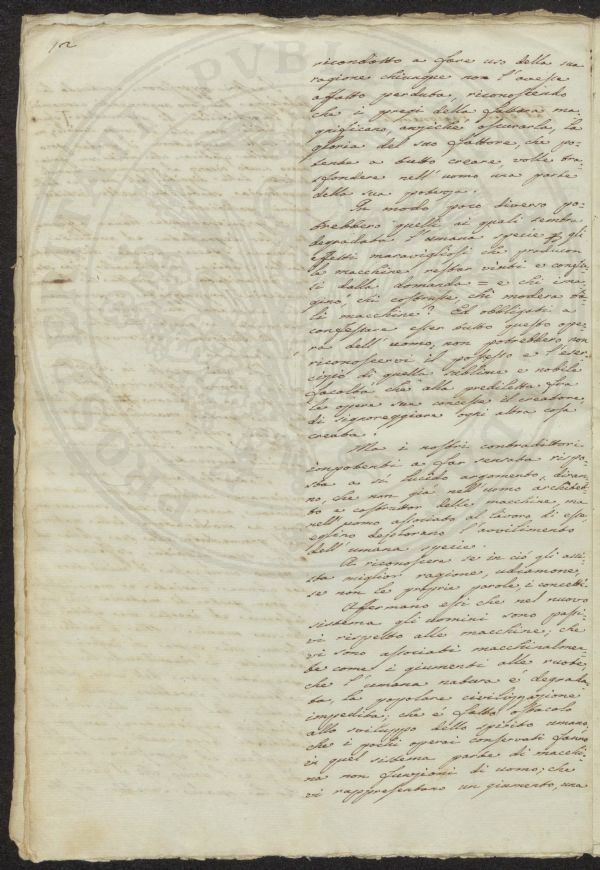 12
ricondotto a fare uso della sua
ragione chiunque non l'avesse
affatto perduta, riconoscendo
che i pregi della fattura ma,
gnificano, anziche oscurarla, la
gloria del suo fattore, che po-
tente a tutto creare volle tra,
sfondere nell'uomo una parte
della sua potenza.
In modo poco diverso po-
trebbero quelli ai quali sembra
degradata l'umana specie gli
effetti maravigliosi che producon
le macchine restar vinti e confu,
si dalla domanda = e chi ima
ginò, chi costrusse, chi modera ta
li macchine? Ed obbligati a
confessare esser tutto questo ope,
ra dell'uomo, non potrebbero non
riconoscervi il possesso e l'eser-
cizio di quella sublime e nobile
facoltà che alla prediletta fra
le opere sue concesse il creatore,
di signoreggiare ogni altra cosa
creata.
Ma i nostri contradittori
impotenti a far sensata rispo-
sta a sì lucido argomento, diran-
no, che non già nell'uomo architet-
to e costruttor delle macchine, ma
nell'uomo associato al lavoro di esse,
eglino deplorano l'avvilimento
dell'umana specie.
A riconoscere se in ciò gli assi-
sta miglior ragione, udiamone,
se non le proprie parole, i concetti.
Affermano essi che nel nuovo
sistema gli uomini sono passi-
vi rispetto alle macchine; che
vi sono associati macchinalmen-
te come i giumenti alle ruote;
che l'umana natura è degrada
ta, la popolare civilizzazione
impedita; che è fatto ostacolo
allo sviluppo dello spirito umano,
che i pochi operai conservati fanno
in quel sistema parte di macchi-
na non funzioni di uomo; che
vi rappresentano un giumento, una